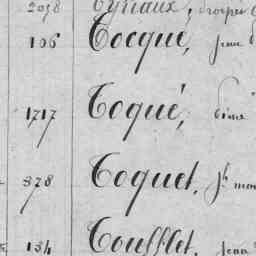 2058 Cyriaux,
106 Cocqué, jean
1717 Coqué,
378 Coquet, Jh
134 Coufflet, jean